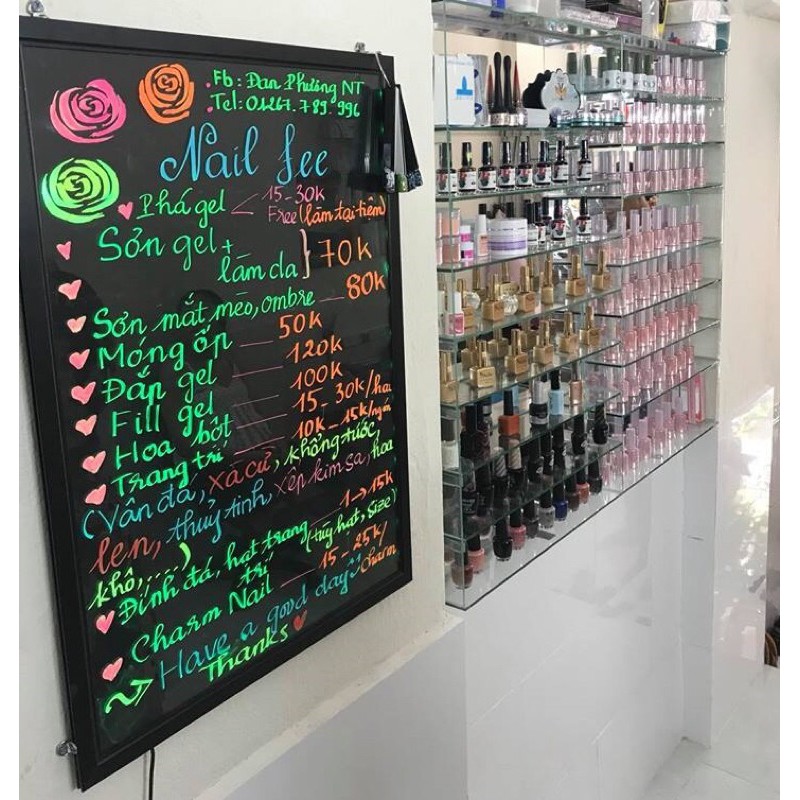 Fb: Đan Phường NT
Tel: 01267.789.996
Nail fee
Phá gel < 15-30K
Free (làm tại tiệm)
Sơn gel + làm da } 70K
Sơn mắt mèo, ombre — 80K
Móng ốp — 50K
Đắp gel — 120K
Fill gel — 100K
Hoa bột — 15-30K/hai
Trang trí — 10K-15K/ngón
(Vân đá, xà cừ, khổng tước,
len, thuỷ tinh, xếp kim sa, hoa
khô,....)
Đính đá, hạt trang trí — 1→15K
(tùy hạt, size)
Charm Nail — 15-25K/charm
Have a good day
Thanks